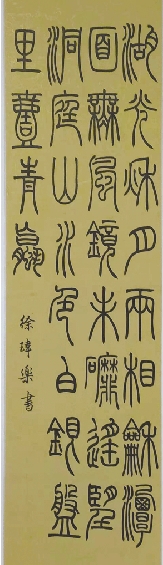 湖光秋月兩相龢潭
面無風鏡未磨遙望
洞庭山水色白銀盤
里壹青蠃
徐瑋樂書